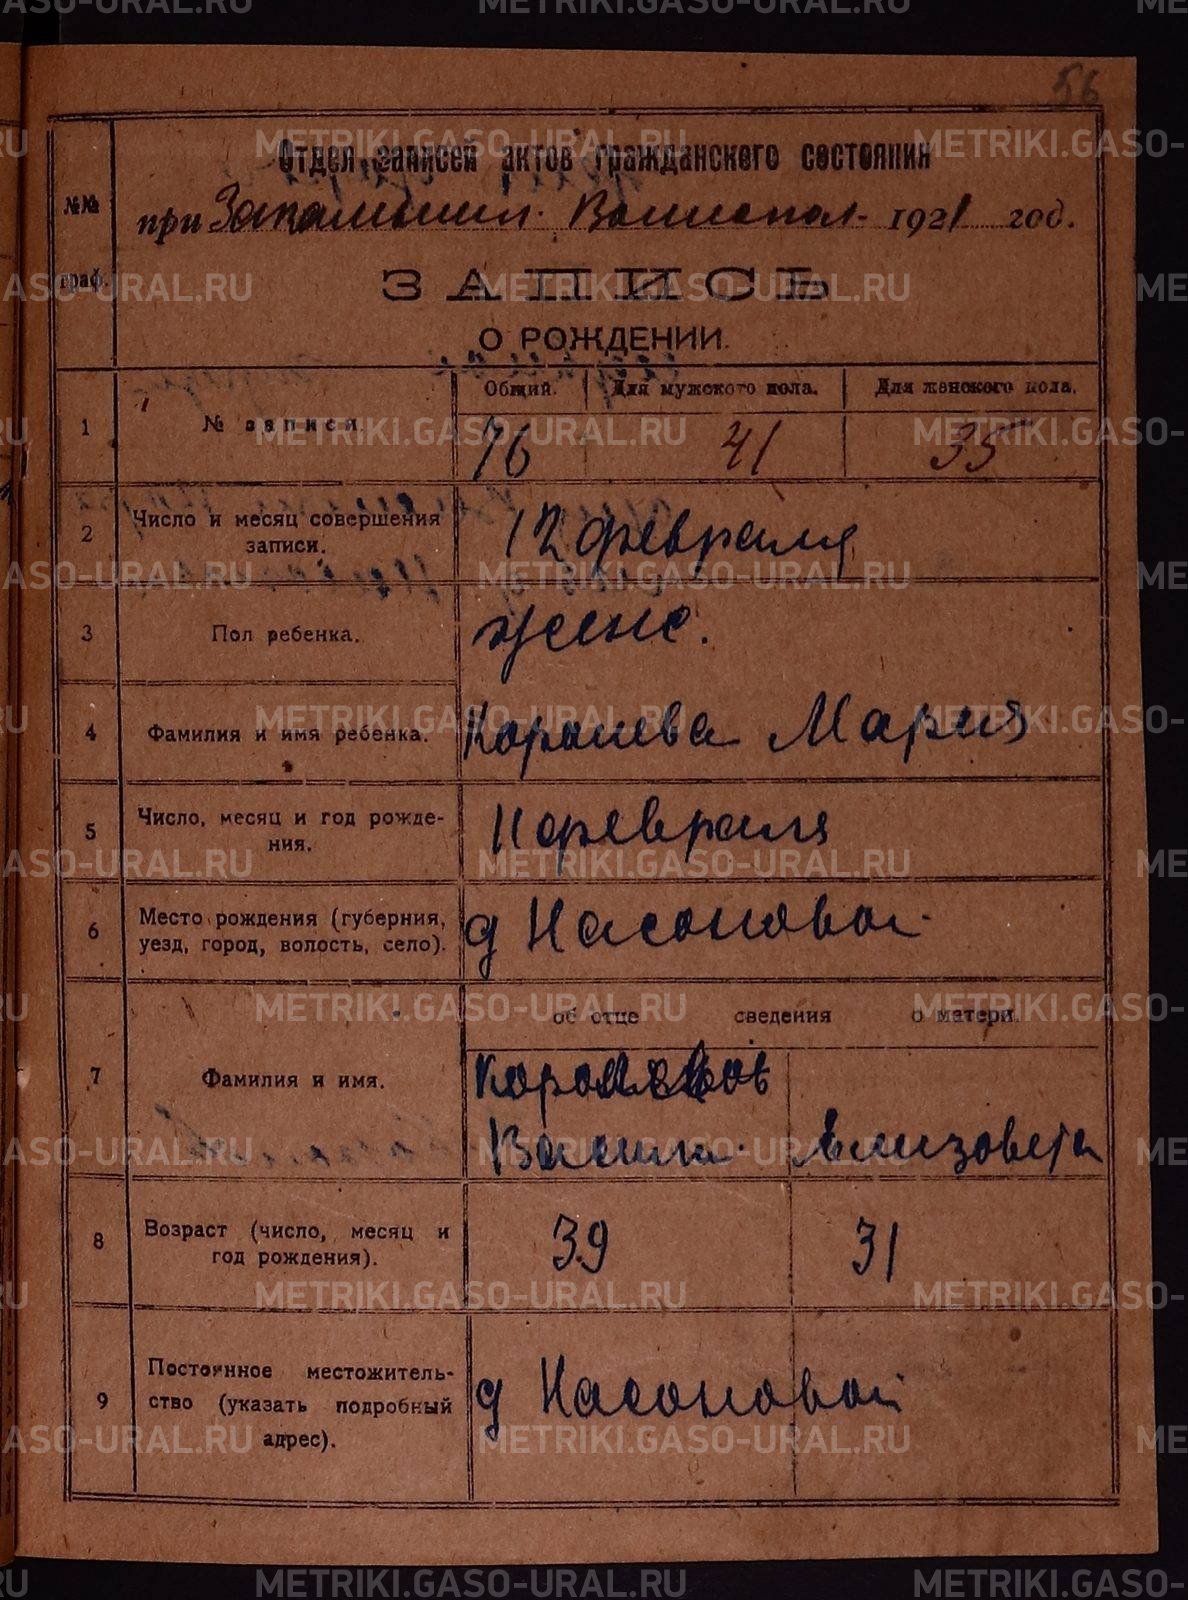 56
Отдел записей актов гражданского состояния
№№ граф.
при Волиспол. 1921 год.
ЗАПИСЬ
О РОЖДЕНИИ.
Общий. Для мужского пола. Для женского пола.
1 № записи. 76 41 35
2 Число и месяц совершения
записи. 12 февраля
3 Пол ребенка. женс.
4 Фамилия и имя ребенка. Королева Мария
5 Число, месяц и год рожде-
ния. 11 февраля
6 Место рождения (губерния,
уезд, город, волость, село). д Насоновой
об отце сведения о матери.
7 Фамилия и имя.
Васили Елизовета
8 Возраст (число, месяц и
год рождения). 39 31
9 Постоянное местожитель-
ство (указать подробный
адрес). д Насоновой
METRIKI.GASO-URAL.RU